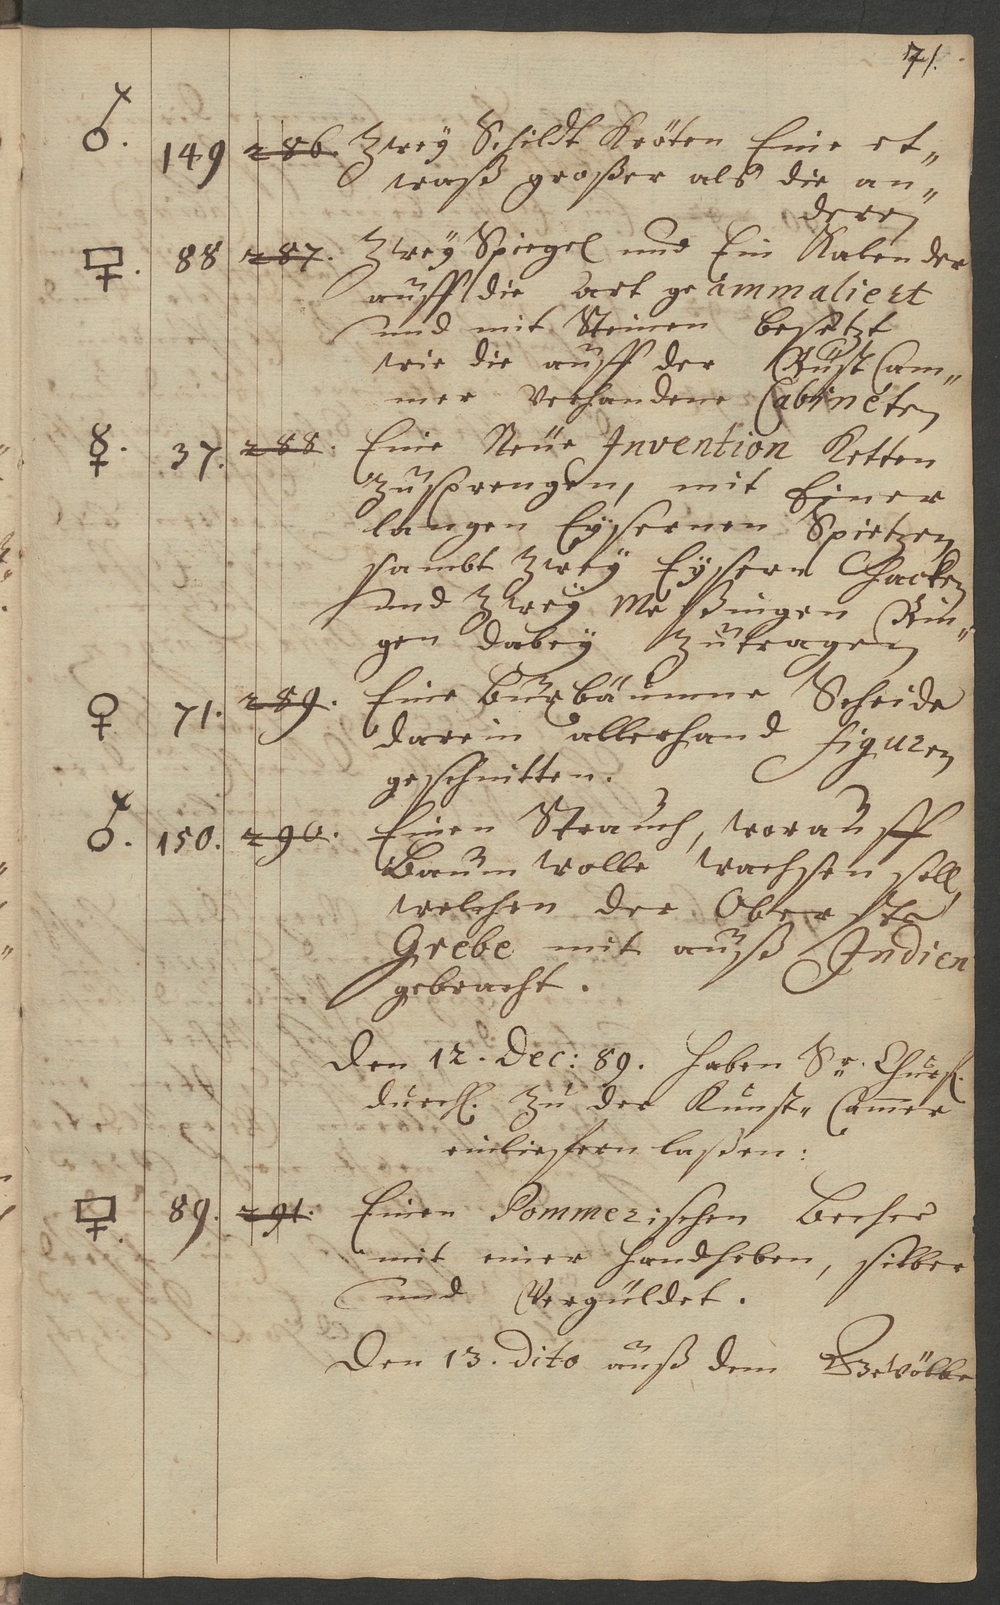 71.
♂. 149 286. Zweÿ Schildt Kröten Eine et„
waß großer als die an„
dere
88 287. Zweÿ Spiegel und Ein Kalender
auff die art ge ämmaliert
und mit Steinen besetzt
wie die auff der Rüst Cam„
mer Verhandene Cabineten
☿. 37. 288. Eine Neüe Invention Ketten
zusprengen, mit Einer
langen Eyßernen Spietzen
sambt Zweÿ Eyßern Hacken
und Zweÿ Meßingen Rin„
gen dabeÿ Zutragen
♀ 71. 289. Eine Buxbäumne Scheide
darein allerhand figuren
geschnitten.
♂. 150. 290. Einen Strauch, worauff
Baum wolle wachsen soll,
welchen der Oberste
Grebe mit auß Indien
gebracht.
Den 12. Dec: 89. haben Sr. Churfl.
durchl. Zu der Kunst„ Camer
einlieffern laßen:
89. 291. Einen Pommerischen Becher
mit einer handheben, silber
und Vergüldet.
Den 13. dito auß dem Gewölbe